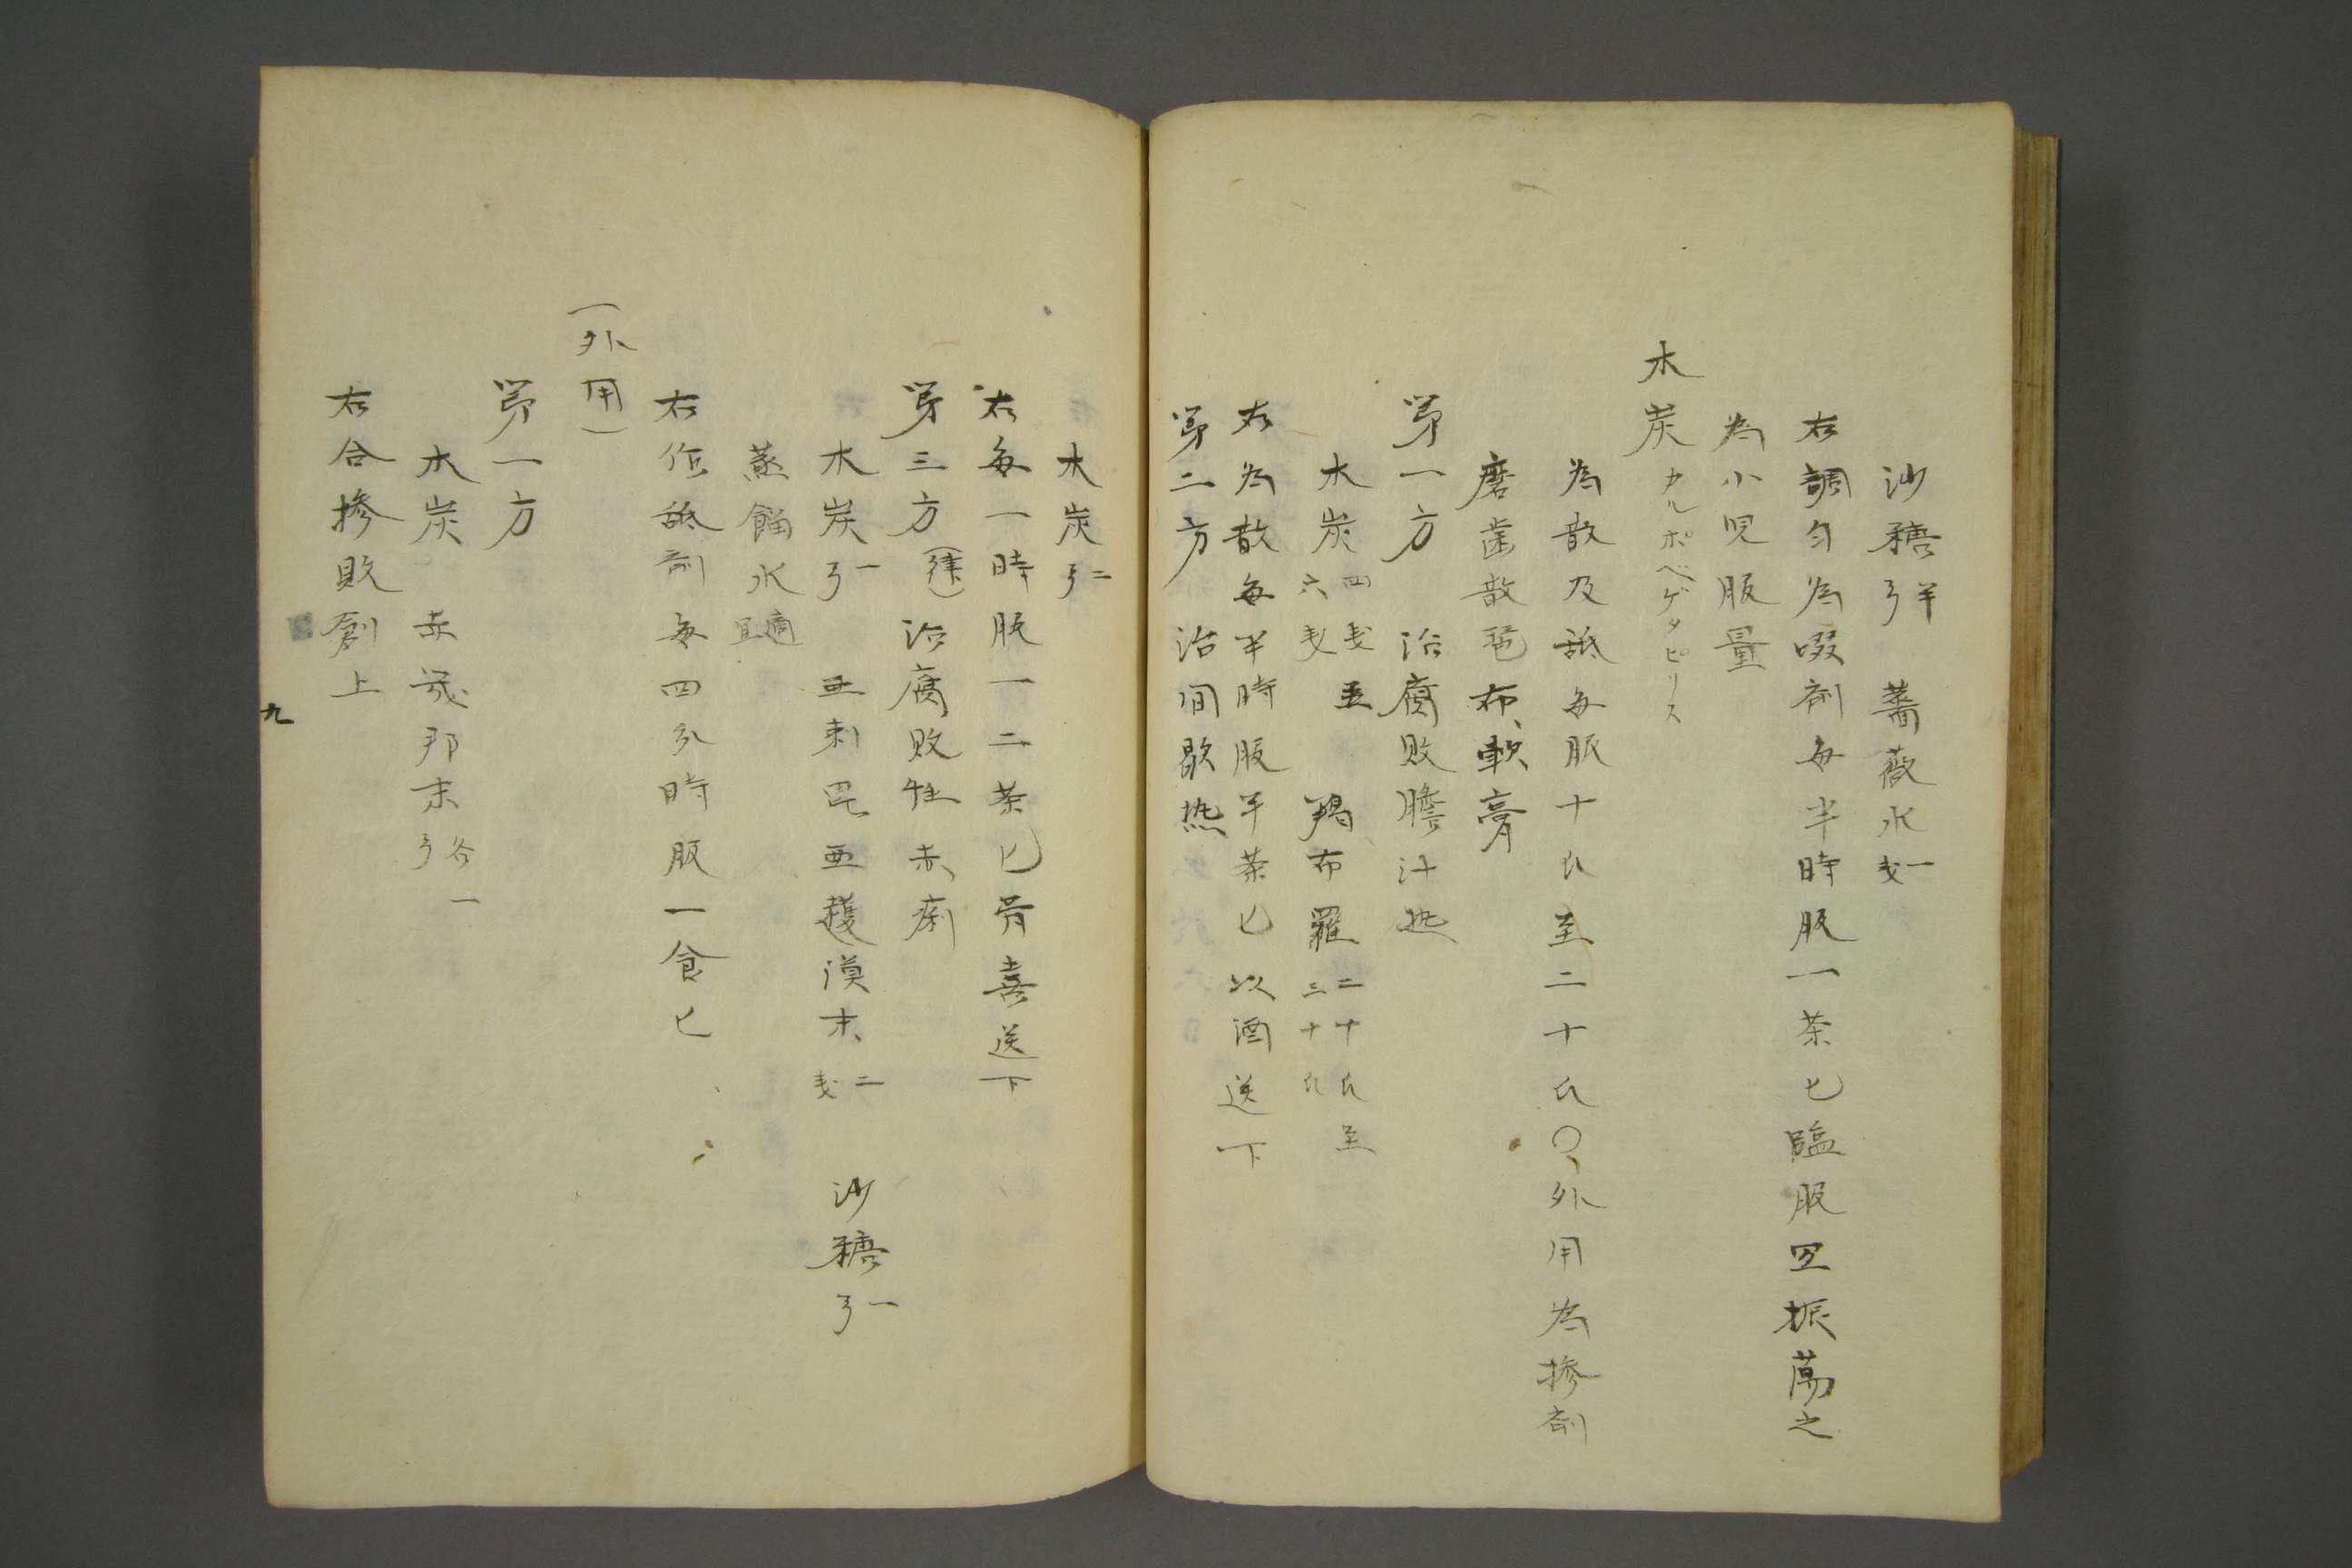 沙糖半ℨ 薔薇水一戔
右調勻為啜剤毎半時服一茶匕臨服宜振蕩之
為小児服量
木炭カルボベゲタビリス
為散及舐毎服十氏至二十氏〇外用為摻剤
磨歯散琶布、軟膏
第一方 治腐敗膽汁熱
木炭四戔至六戔 羯布羅二十氏至三十氏
右為散毎半時服半茶匕以酒送下
第二方 治間歇熱
木炭二ℨ
右毎一時服一二茶匕
第三方 治腐敗性赤痢
木炭一ℨ 亜刺
沙糖一ℨ
蒸餾水適宜
右作舐剤毎四分時服一食匕
(外用)
第一方
木炭 赤 邦末各一ℨ
右合摻敗創上
九